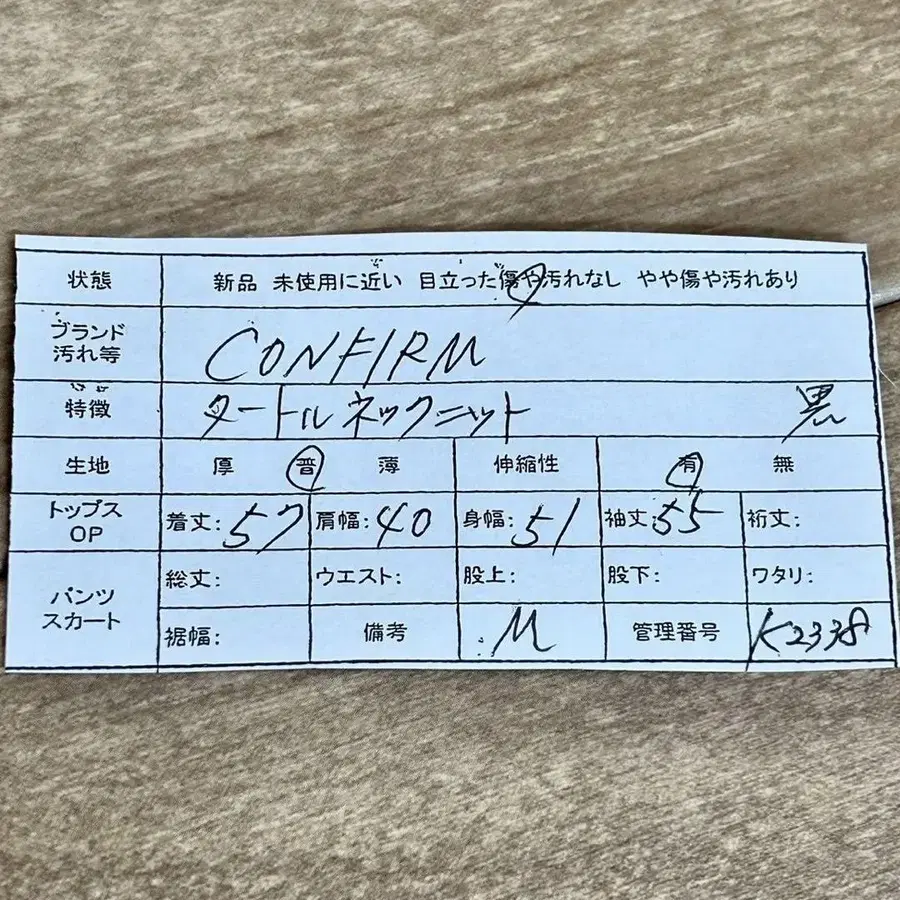 状態 新品 未使用に近い 目立った傷や汚れなし やや傷や汚れあり
ブランド
汚れ等 CONFIRM
特徴 タートルネックニット 黒
生地 厚 普 薄 伸縮性 有 無
トップス
OP 着丈:57 肩幅:40 身幅:51 袖丈:55 裄丈:
パンツ
スカート 総丈: ウエスト: 股上: 股下: ワタリ:
裾幅: 備考 M 管理番号 K2338